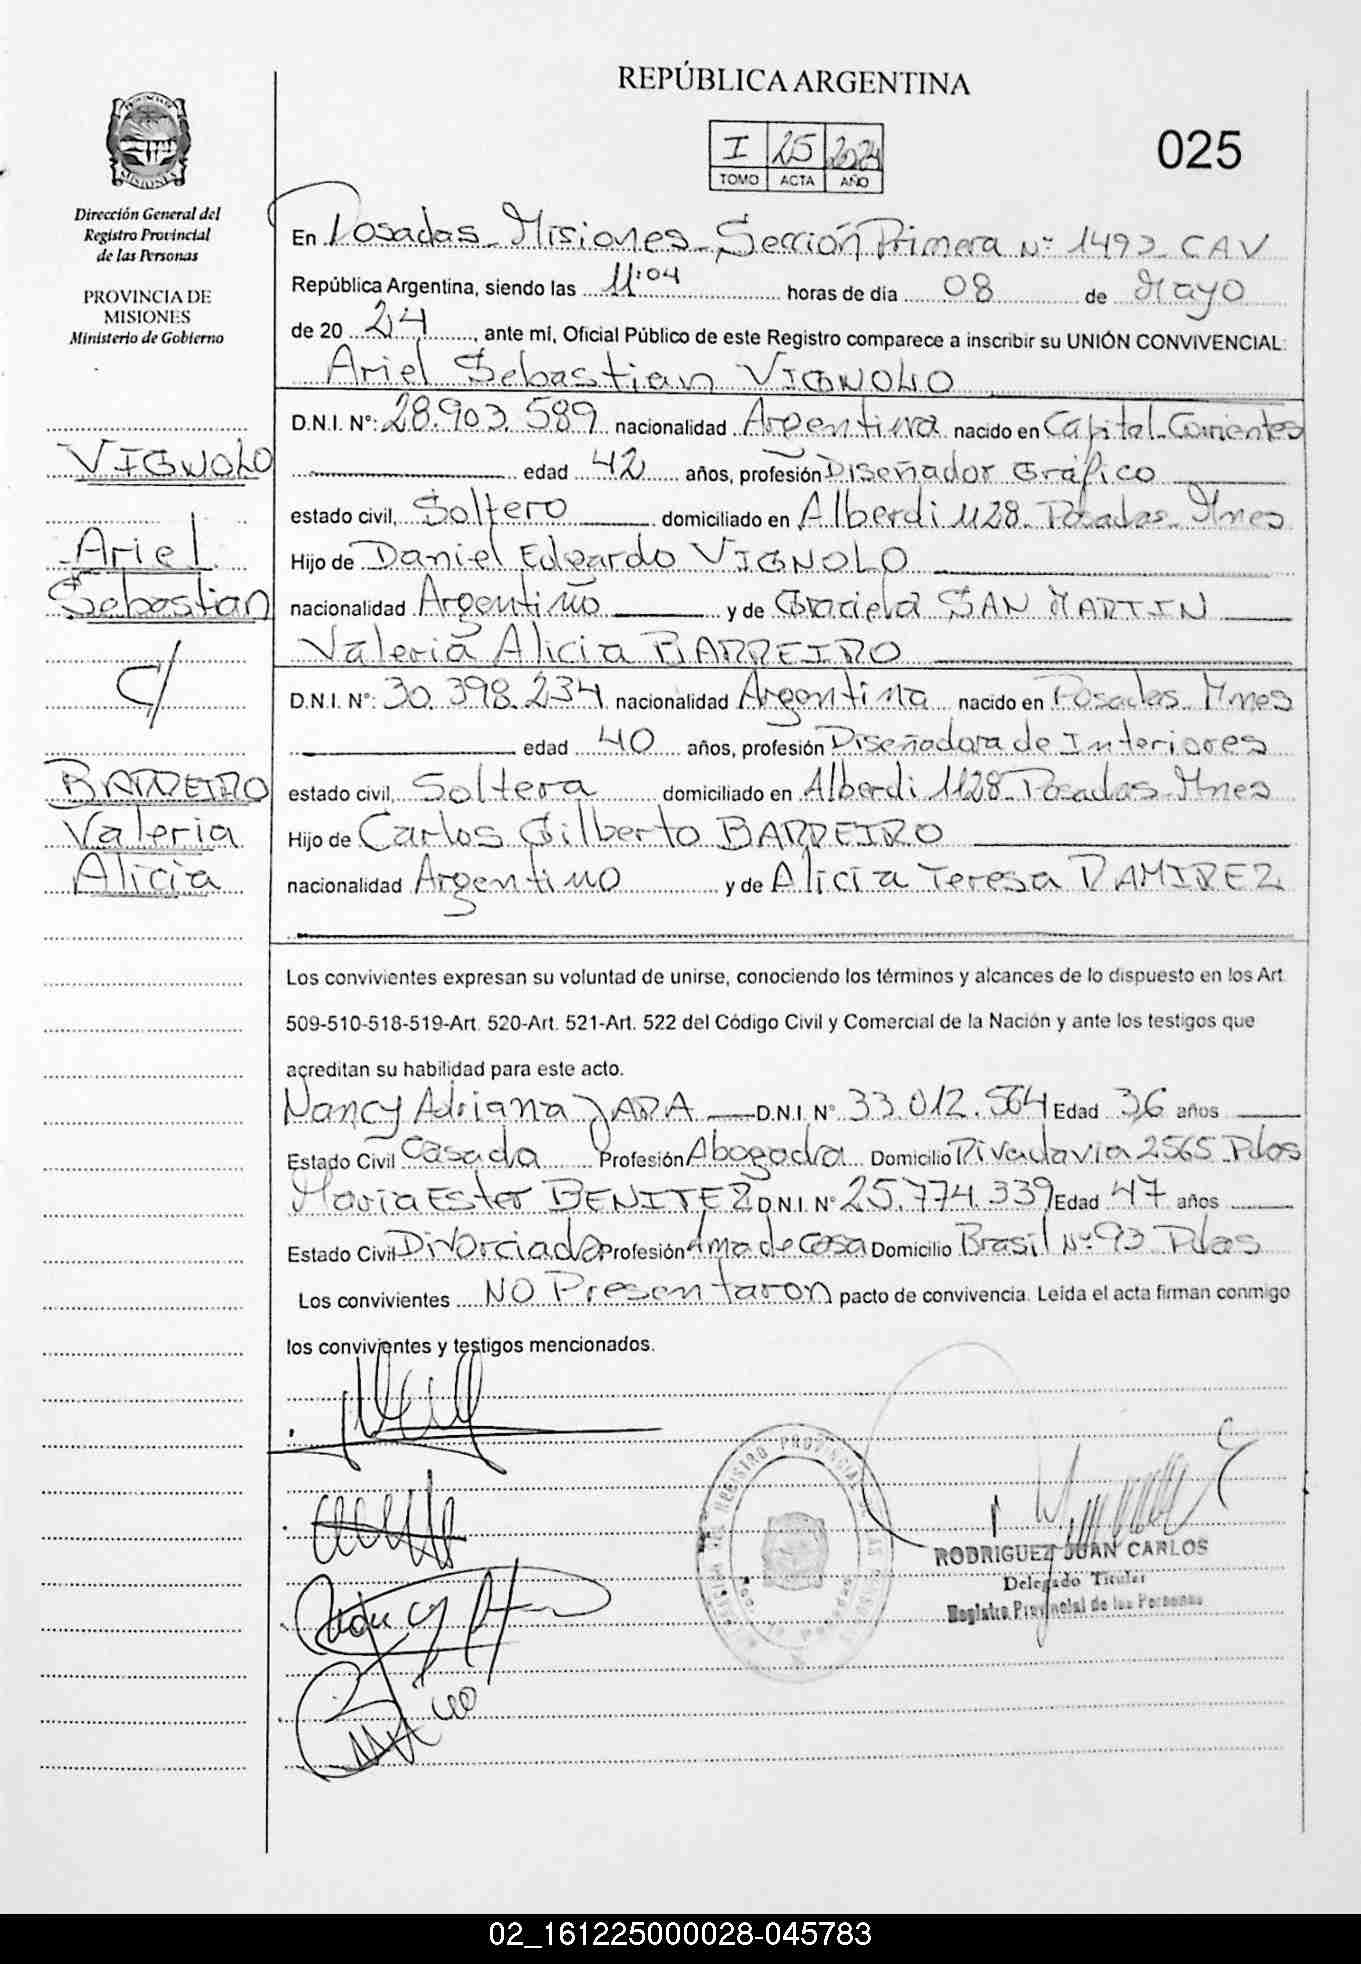 REPÚBLICA ARGENTINA
I 25 2024
TOMO ACTA AÑO
025
MISIONES
Dirección General del
Registro Provincial
de las Personas
PROVINCIA DE
MISIONES
Ministerio de Gobierno
En Posadas - Misiones - Sección Primera Nº 1493 CAV
República Argentina, siendo las 11:04 horas de día 08 de Mayo
de 20 24, ante mí, Oficial Público de este Registro comparece a inscribir su UNIÓN CONVIVENCIAL:
Ariel Sebastian VIGNOLO
D.N.I. Nº: 28.903.589 nacionalidad Argentina nacido en Capital - Corrientes
edad 42 años, profesión Diseñador Gráfico
estado civil, Soltero domiciliado en Alberdi 1128 - Posadas - Mnes
Hijo de Daniel Edgardo VIGNOLO
nacionalidad Argentino y de Graciela SAN MARTIN
Valeria Alicia BARREIRO
D.N.I. Nº: 30.398.234 nacionalidad Argentina nacido en Posadas - Mnes
edad 40 años, profesión Diseñadora de Interiores
estado civil, Soltera domiciliado en Alberdi 1128 - Posadas - Mnes
Hijo de Carlos Gilberto BARREIRO
nacionalidad Argentino y de Alicia Teresa RAMIREZ
VIGNOLO
Ariel
Sebastian
C/
BARREIRO
Valeria
Alicia
Los convivientes expresan su voluntad de unirse, conociendo los términos y alcances de lo dispuesto en los Art.
509-510-518-519-Art. 520-Art. 521-Art. 522 del Código Civil y Comercial de la Nación y ante los testigos que
acreditan su habilidad para este acto.
Nancy Adriana JARA D.N.I. Nº 33.012.564 Edad 36 años
Estado Civil Casada Profesión Abogada Domicilio Rivadavia 2565 Pdas
Maria Ester BENITEZ D.N.I. Nº 25.774.339 Edad 47 años
Estado Civil Divorciada Profesión Ama de Casa Domicilio Brasil Nº 93 Pdas
Los convivientes NO Presentaron pacto de convivencia. Leída el acta firman conmigo
los convivientes y testigos mencionados.
RODRIGUEZ JUAN CARLOS
Delegado Titular
Registro Provincial de las Personas
02_161225000028-045783